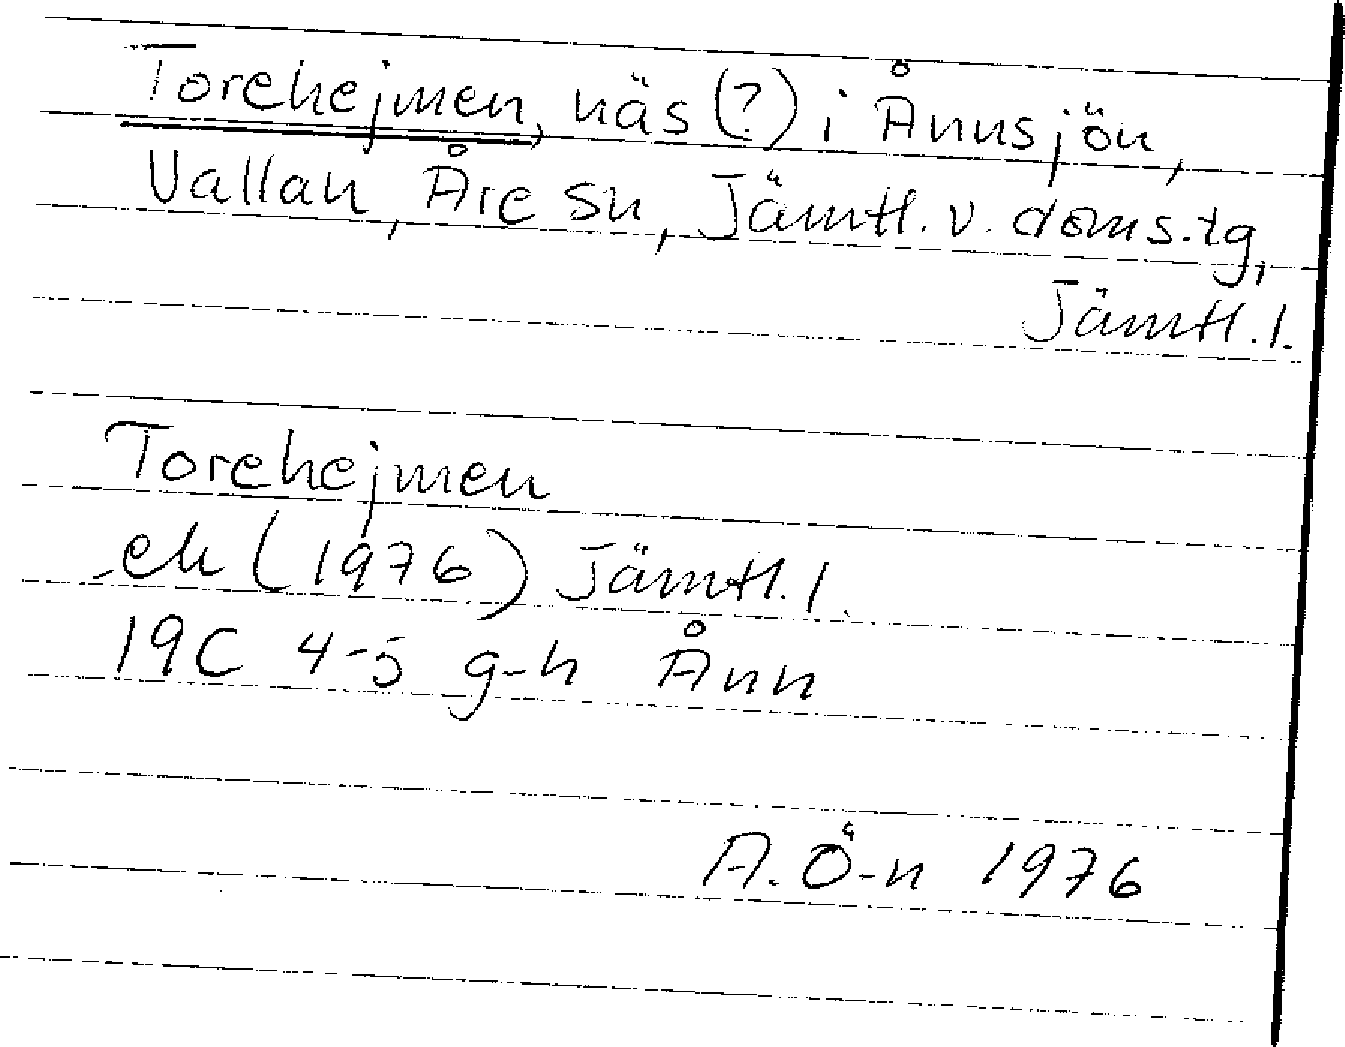 Torehejmen, näs (?) i Ånnsjön,
Vallan, Åre sn, Jämtl. v. doms.tg,
Jämtl. l.
Torehejmen
ek (1976) Jämtl. l.
19C 4-5 g-h Ånn
A. Ö-n 1976